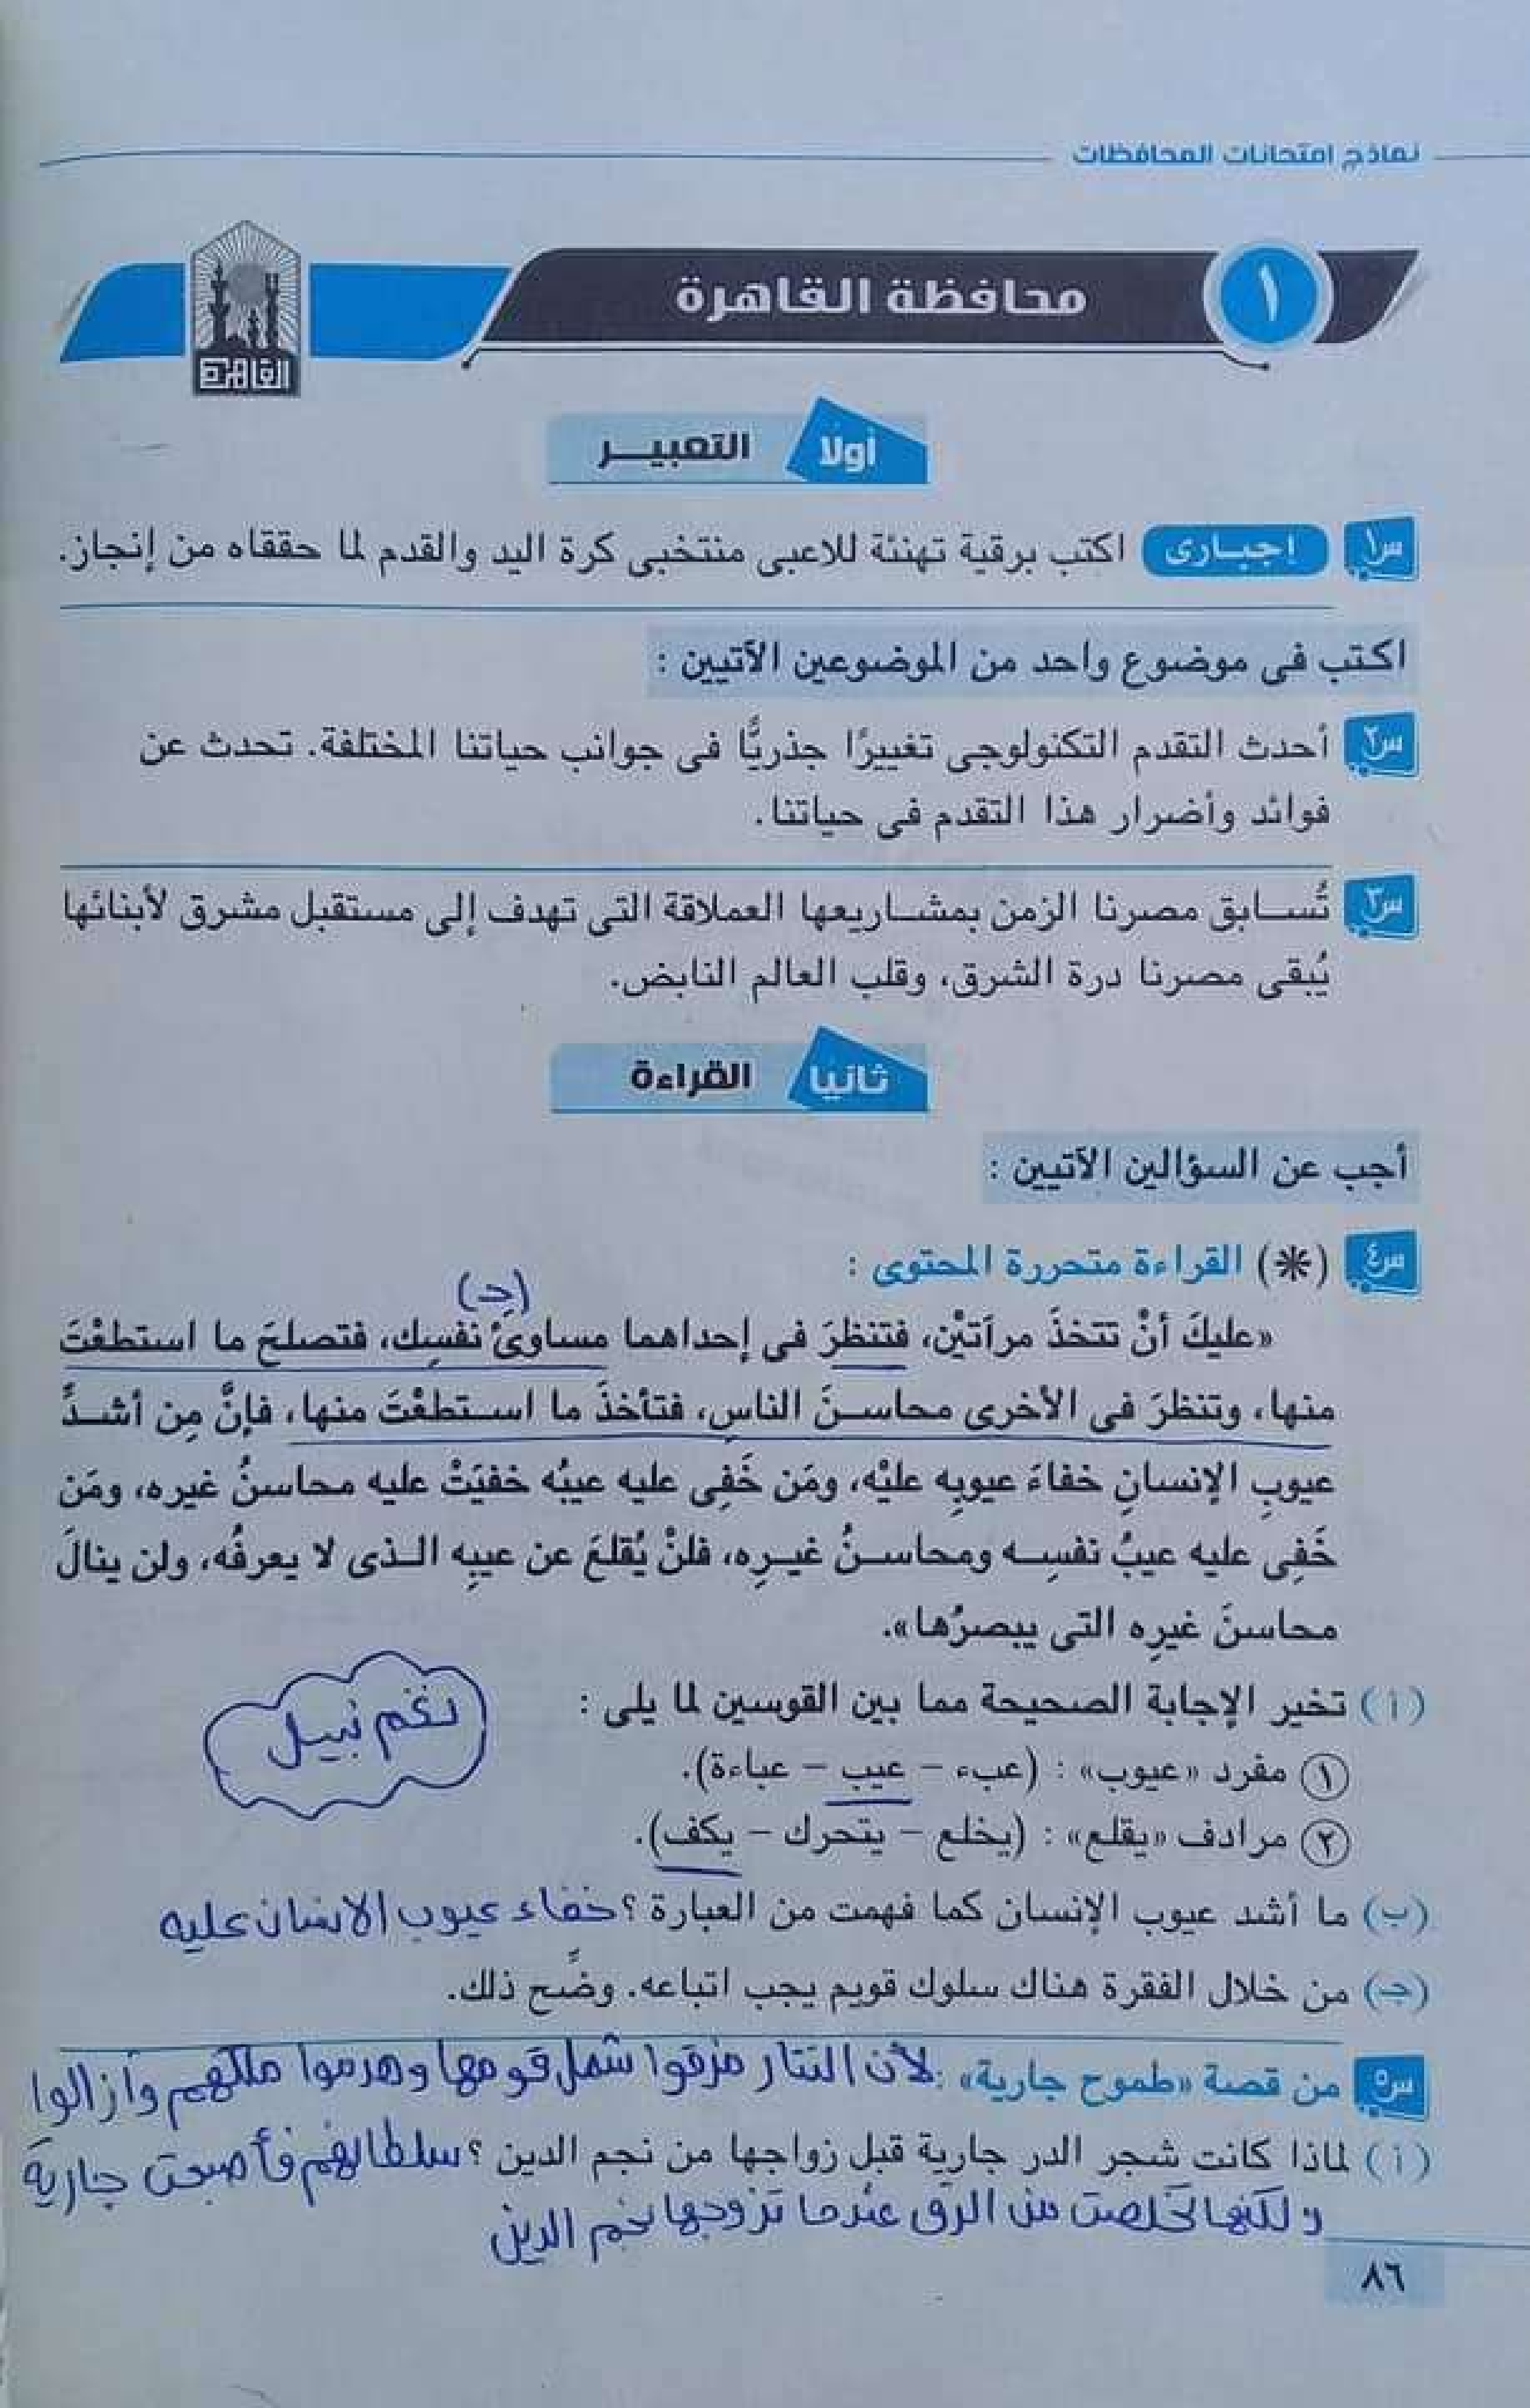 نماذج امتحانات المحافظات
١ محافظة القاهرة
القاهرة
أولا التعبيــر
س١ إجبـارى اكتب برقية تهنئة للاعبى منتخبى كرة اليد والقدم لما حققاه من إنجاز.
اكتب فى موضوع واحد من الموضوعين الآتيين :
س٢ أحدث التقدم التكنولوجى تغييرًا جذريًّا فى جوانب حياتنا المختلفة. تحدث عن
فوائد وأضرار هذا التقدم فى حياتنا.
س٣ تُســابق مصرنا الزمن بمشــاريعها العملاقة التى تهدف إلى مستقبل مشرق لأبنائها
يُبقى مصرنا درة الشرق، وقلب العالم النابض.
ثانيا القراءة
أجب عن السؤالين الآتيين :
س٤ (*) القراءة متحررة المحتوى :
(جـ)
«عليكَ أنْ تتخذَ مرآتيْن، فتنظرَ فى إحداهما مساوئ نفسِك، فتصلحَ ما استطعْتَ
منها، وتنظرَ فى الأخرى محاســنَ الناسِ، فتأخذَ ما اســتطعْتَ منها، فإنَّ مِن أشــدِّ
عيوبِ الإنسانِ خفاءَ عيوبِه عليْه، ومَن خَفِى عليه عيبُه خفيَتْ عليه محاسنُ غيره، ومَن
خَفِى عليه عيبُ نفسِــه ومحاســنُ غيــرِه، فلنْ يُقلعَ عن عيبِه الــذى لا يعرفُه، ولن ينالَ
محاسنَ غيرِه التى يبصرُها».
(أ) تخير الإجابة الصحيحة مما بين القوسين لما يلى :
نغم نبيل
١ مفرد «عيوب» : (عبء – عيب – عباءة).
٢ مرادف «يقلع» : (يخلع – يتحرك – يكف).
(ب) ما أشد عيوب الإنسان كما فهمت من العبارة ؟ خفاء عيوب الانسان عليه
(جـ) من خلال الفقرة هناك سلوك قويم يجب اتباعه. وضَّح ذلك.
س٥ من قصة «طموح جارية» : لأن التتار مزقوا شمل قومها وهدموا ملكهم وأزالوا
(أ) لماذا كانت شجر الدر جارية قبل زواجها من نجم الدين ؟ سلطانهم فأصبحت جارية
ولكنها تخلصت من الرق عندما تزوجها نجم الدين
٨٦